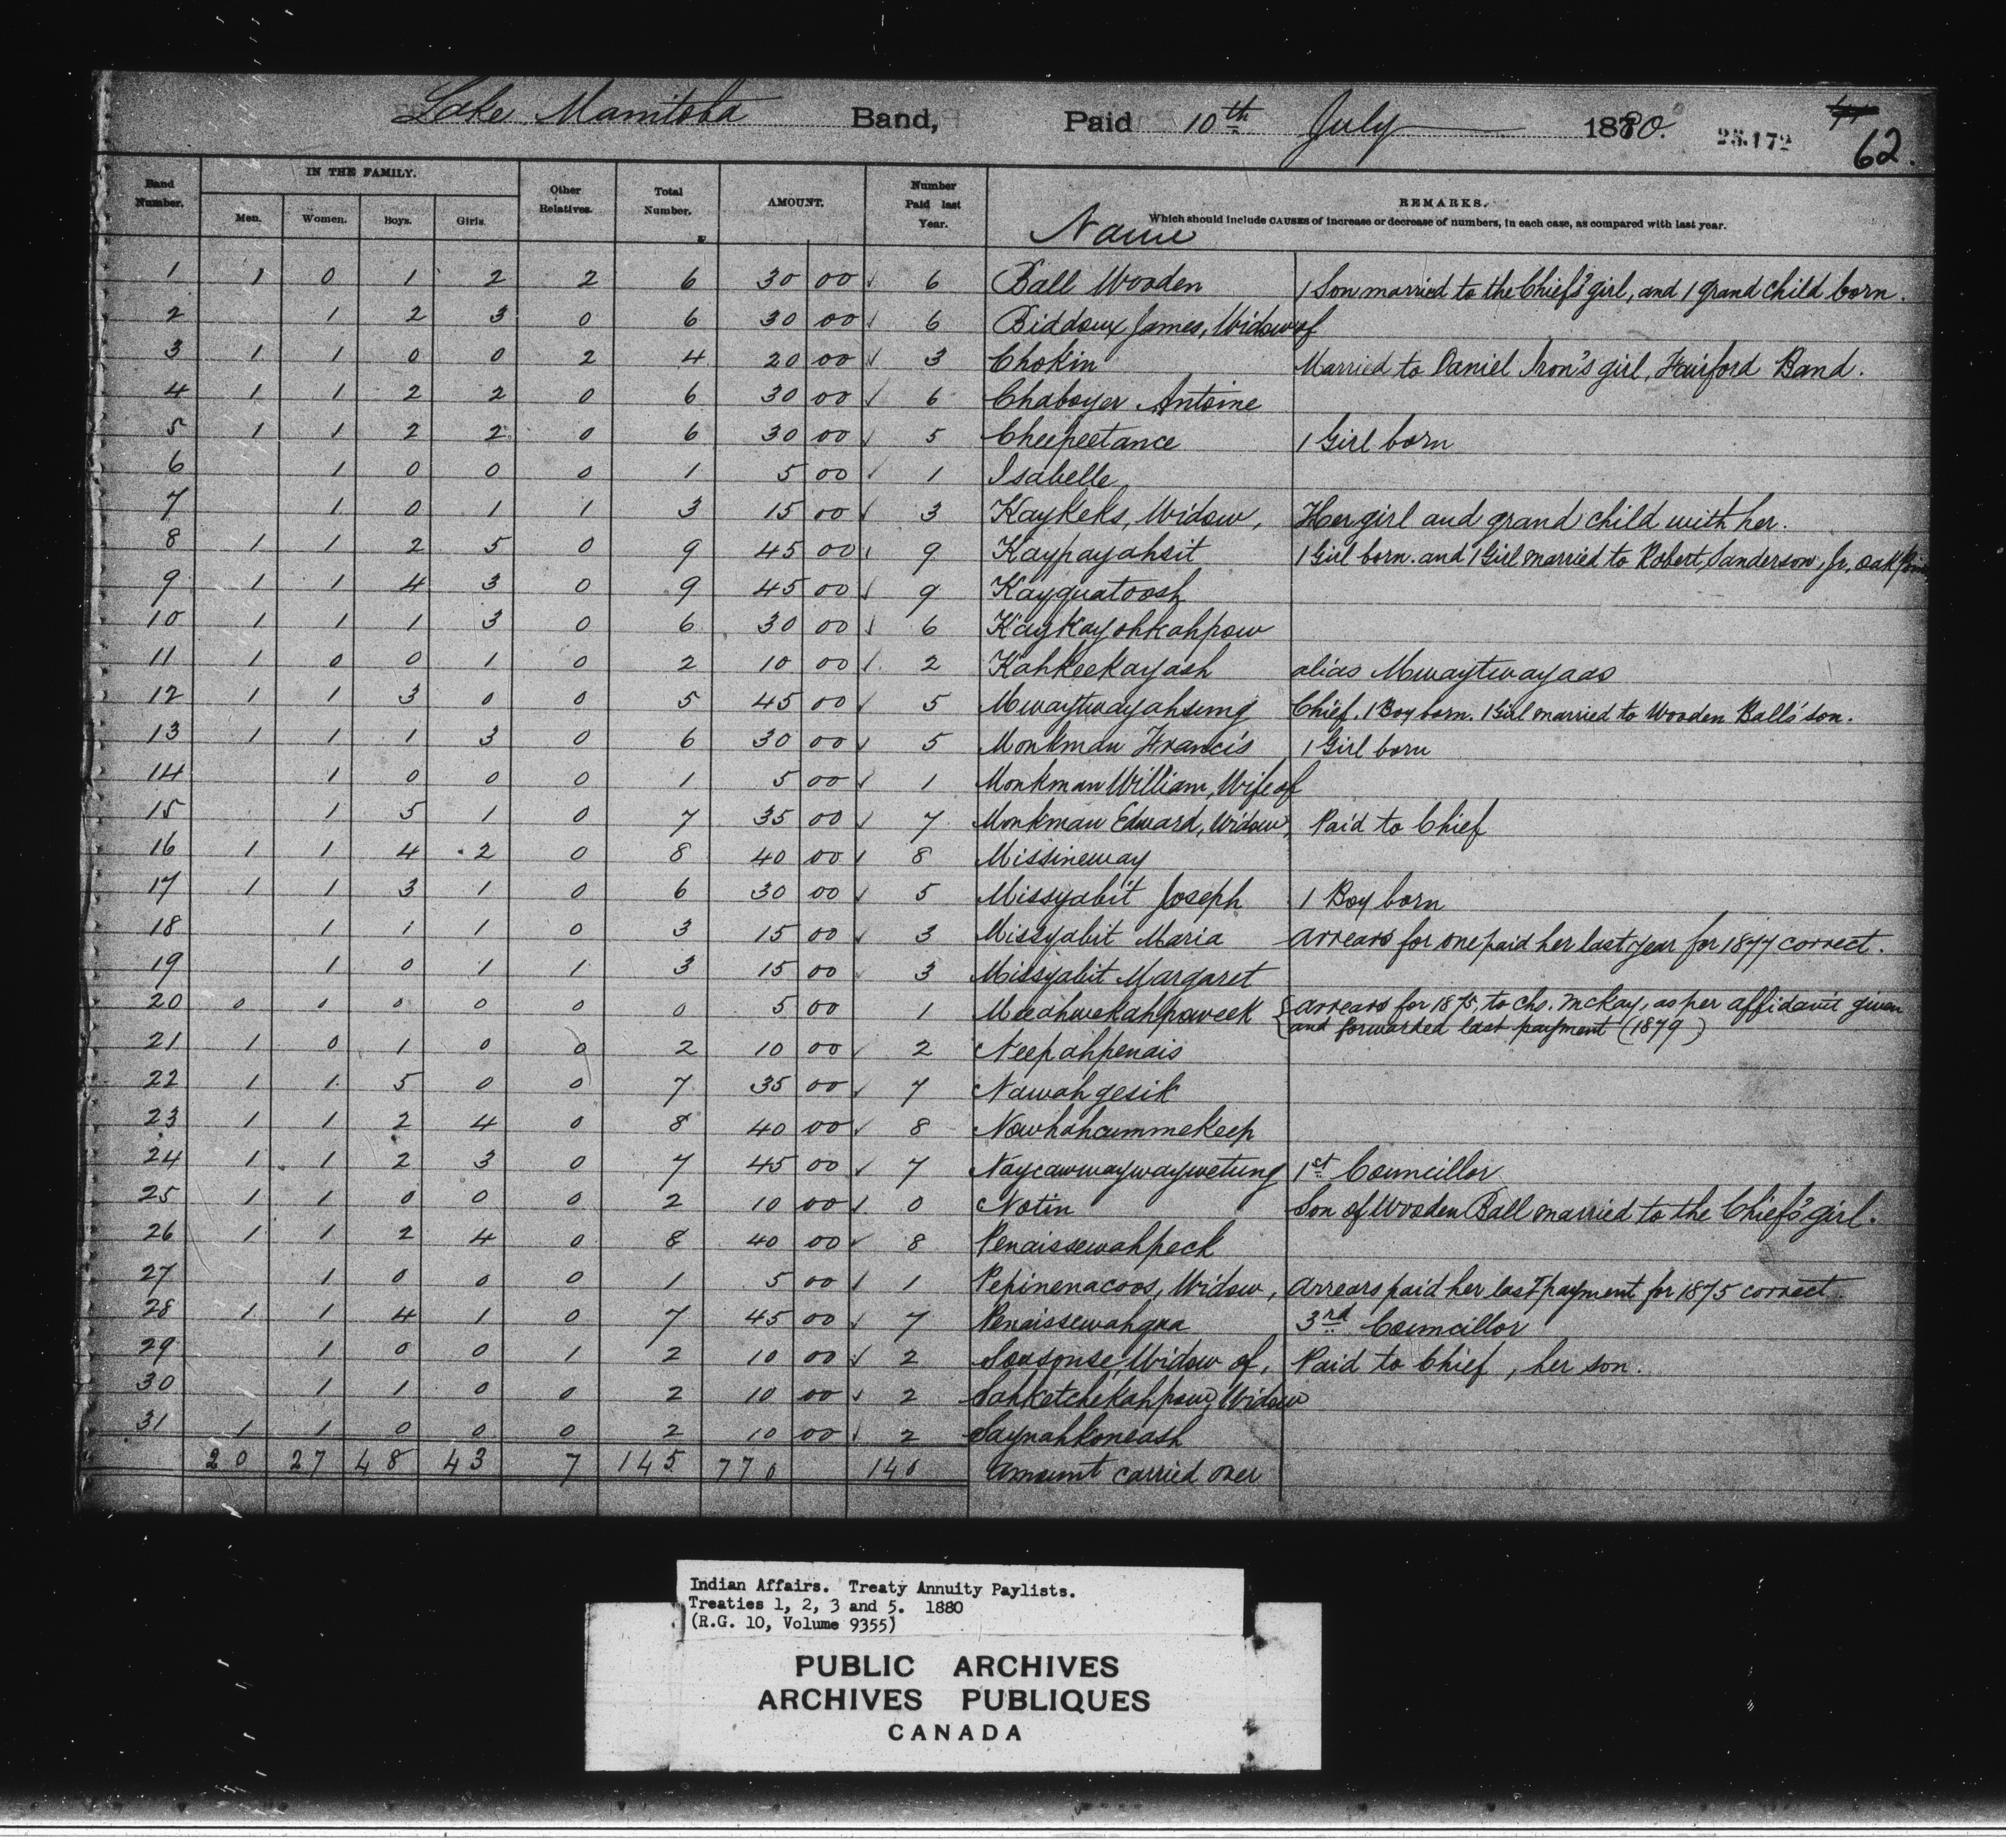 Lake Manitoba Band, Paid 10th July 1880. 25.172 62.
Band Number. IN THE FAMILY. Men. Women. Boys. Girls. Other Relatives. Total Number. AMOUNT. Number Paid last Year. Name REMARKS. Which should include CAUSES of increase or decrease of numbers, in each case, as compared with last year.
1 1 0 1 2 2 6 30 00 6 Ball Wooden 1 Son married to the Chief's girl, and 1 grand child born.
2 1 2 3 0 6 30 00 6 Biddoux James, Widow of
3 1 1 0 0 2 4 20 00 3 Chokin Married to Daniel Iron's girl, Fairford Band.
4 1 1 2 2 0 6 30 00 6 Chaboyer Antoine
5 1 1 2 2 0 6 30 00 5 Cheepeetance 1 Girl born
6 1 0 0 0 1 5 00 1 Isabelle
7 1 0 1 1 3 15 00 3 Kaykeks, Widow, Her girl and grand child with her.
8 1 1 2 5 0 9 45 00 9 Kaypayahsit 1 Girl born. and 1 Girl married to Robert Sanderson, Jr, Oak
9 1 1 4 3 0 9 45 00 9 Kayquatoosh
10 1 1 1 3 0 6 30 00 6 Kaykayohkahpow
11 1 0 0 1 0 2 10 00 2 Kahkeekayash alias Mwaytwayaas
12 1 1 3 0 0 5 45 00 5 Mwaytwayahsung Chief. 1 Boy born. 1 Girl married to Wooden Ball's son.
13 1 1 1 3 0 6 30 00 5 Monkman Francis 1 Girl born
14 1 0 0 0 1 5 00 1 Monkman William, Wife of
15 1 5 1 0 7 35 00 7 Monkman Edward, Widow, Paid to Chief
16 1 1 4 2 0 8 40 00 8 Missineway
17 1 1 3 1 0 6 30 00 5 Missyabit Joseph 1 Boy born
18 1 1 1 0 3 15 00 3 Missyabit Maria arrears for one paid her last year for 1877 correct.
19 1 0 1 1 3 15 00 3 Missyabit Margaret
20 0 0 0 0 0 0 5 00 1 Meeahwekahpoweek { arrears for 1875, to Chs. McKay, as per affidavit given
and forwarded last payment (1879)
21 1 0 1 0 0 2 10 00 2 Neepahpenais
22 1 1 5 0 0 7 35 00 7 Nawahgesik
23 1 1 2 4 0 8 40 00 8 Nawhahcummekeep
24 1 1 2 3 0 7 45 00 7 Naycawwaywaywetung 1st Councillor
25 1 1 0 0 0 2 10 00 0 Notin Son of Wooden Ball married to the Chief's girl.
26 1 1 2 4 0 8 40 00 8 Penaissewahpeck
27 1 0 0 0 1 5 00 1 Pepinenacoos, Widow, Arrears paid her last payment for 1875 correct.
28 1 1 4 1 0 7 45 00 7 Penaissewahqua 3rd Councillor
29 1 0 0 1 2 10 00 2 Sousonse, Widow of, Paid to Chief, her son.
30 1 1 0 0 2 10 00 2 Sahketchekahpow, Widow
31 1 1 0 0 0 2 10 00 2 Saynahkoneash
20 27 48 43 7 145 770 140 Amount carried over
Indian Affairs. Treaty Annuity Paylists.
Treaties 1, 2, 3 and 5. 1880
(R.G. 10, Volume 9355)
PUBLIC ARCHIVES
ARCHIVES PUBLIQUES
CANADA